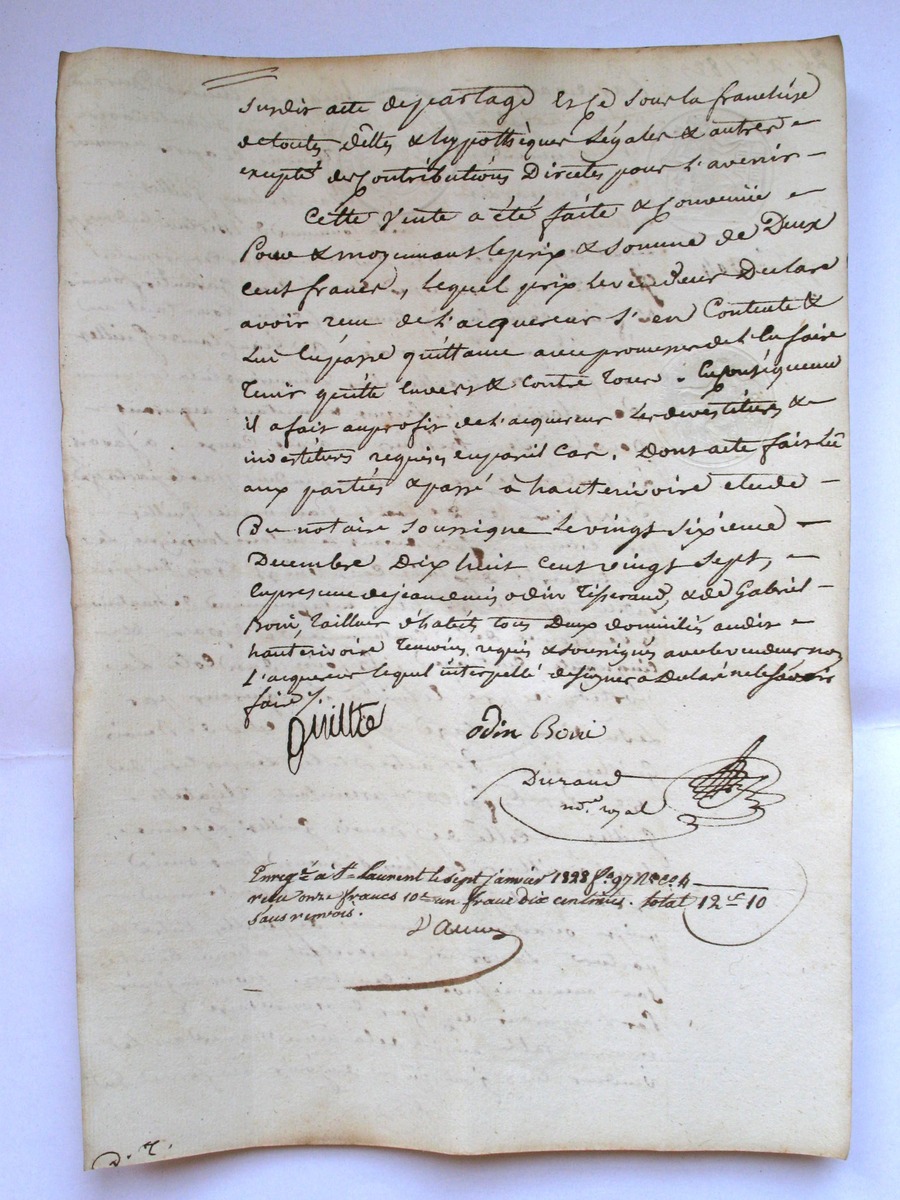 susdit acte de partage Et ce sous la franchise
de toutes dettes & hypothèques Légales & autres
excepté des Contributions Directes pour L'avenir
Cette Vente a été faite & Convenue
Pour & moyennant le prix & Somme de Deux
cent francs, lequel prix le vendeur Declare
avoir reçu de L'acquereur s'en Contente &
Lui En passe quittance avec promesse de L'En faire
Tenir quitte Envers & Contre Tous. En Conséquence
il a fait au profit de L'acquereur Les devestitures &
investitures requises en pareil Cas, Dont acte fait & lû
aux parties & passé a hauterivoire etude
Du notaire Soussigné Le vingt Sixieme
Decembre Dix huit Cent vingt Sept,
En presence de jean denis odin Tisserand, & de Gabriel
Boiri, Tailleur d'habits tous Deux domiciliés audit
hauterivoire Temoins requis & soussignés avec le vendeur non
L'acquereur lequel interpellé de signer a Declaré ne le Savoir
faire
odin Boiri
Durand
no.re royal
Enreg.té à St Laurent le sept janvier 1828 f.o 97
reçu onze francs 10.e un franc dix centimes. total 12 f 10
Sans renvois.